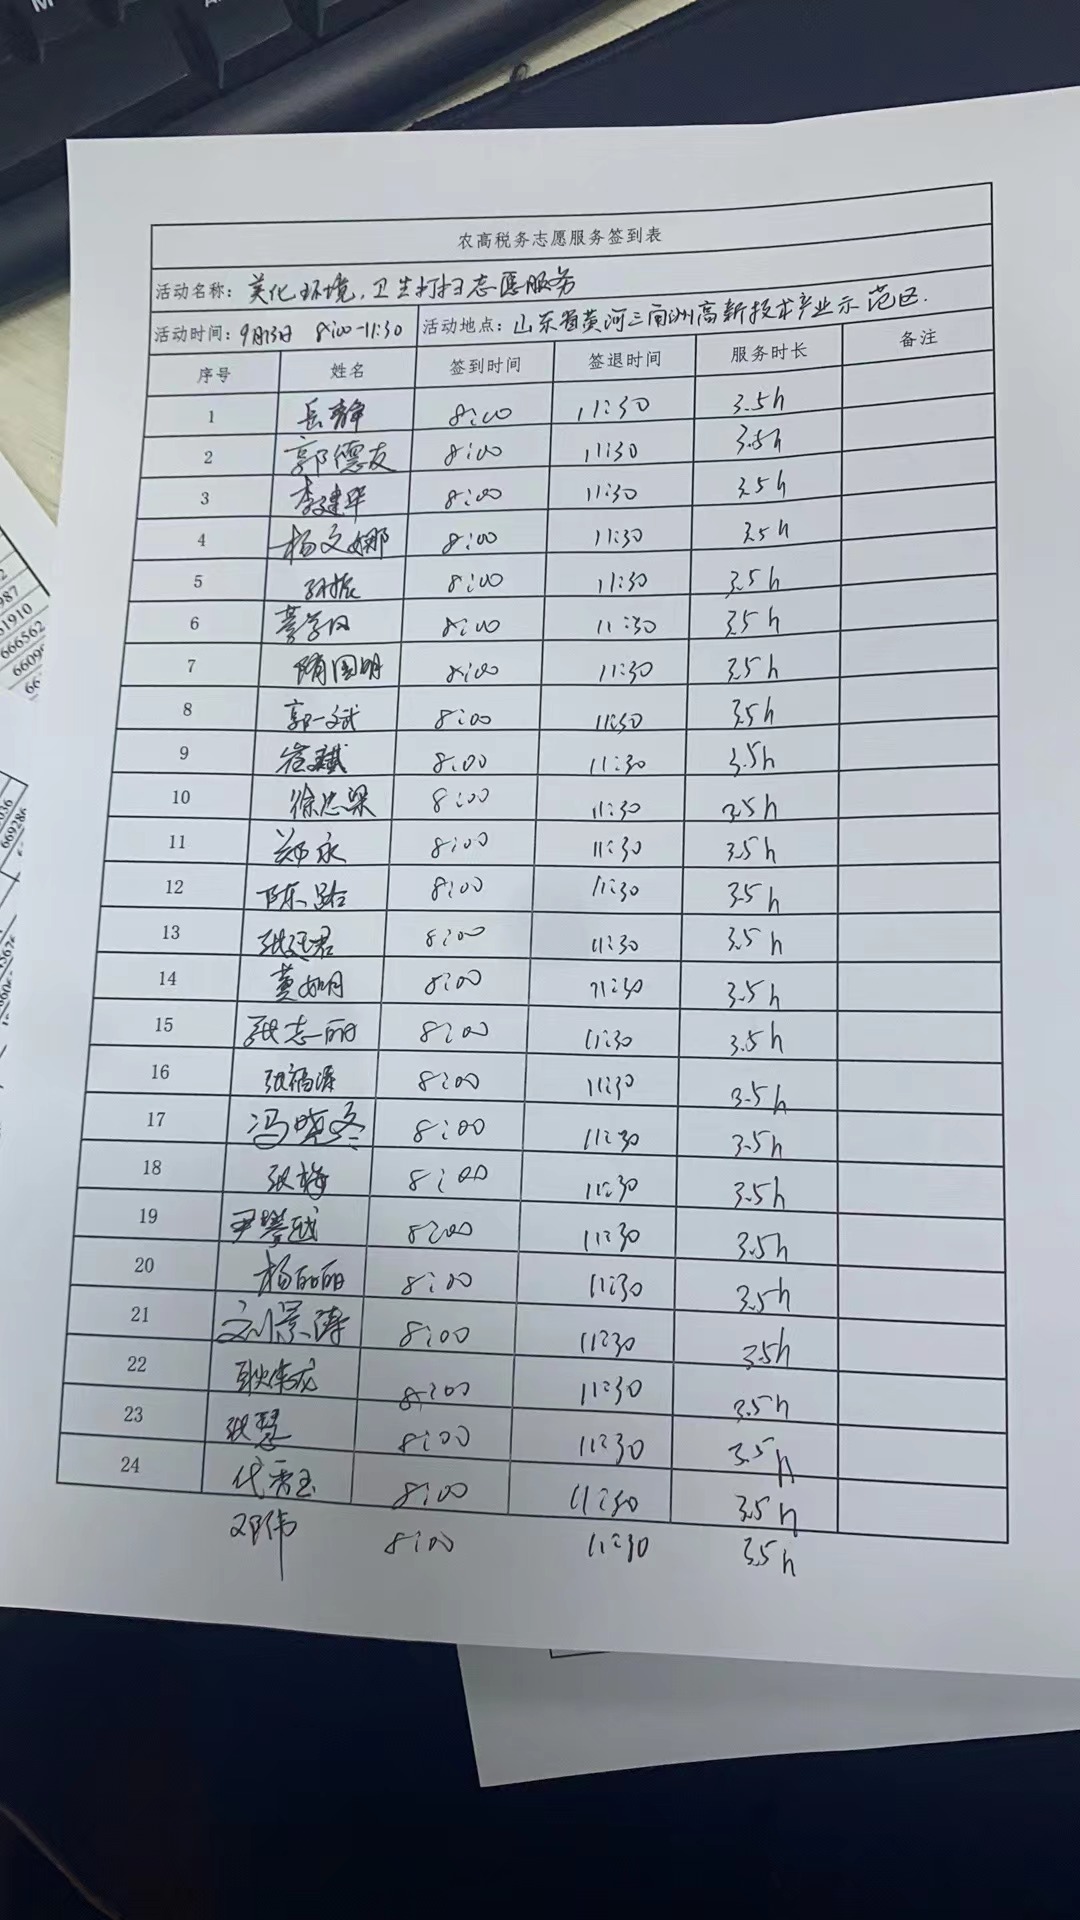 农高税务志愿服务签到表
活动名称：美化环境，卫生打扫志愿服务
活动时间：9月13日 8:00-11:30 活动地点：山东省黄河三角洲高新技术产业示范区.
序号 姓名 签到时间 签退时间 服务时长 备注
1 岳静 8:00 11:30 3.5h
2 郭德友 8:00 11:30 3.5h
3 李建华 8:00 11:30 3.5h
4 杨文娜 8:00 11:30 3.5h
5 孙振 8:00 11:30 3.5h
6 8:00 11:30 3.5h
7 隋国明 8:00 11:30 3.5h
8 郭一斌 8:00 11:30 3.5h
9 崔斌 8:00 11:30 3.5h
10 徐忠梁 8:00 11:30 3.5h
11 郑永 8:00 11:30 3.5h
12 陈路 8:00 11:30 3.5h
13 张廷君 8:00 11:30 3.5h
14 黄如明 8:00 11:30 3.5h
15 张志丽 8:00 11:30 3.5h
16 张福涛 8:00 11:30 3.5h
17 冯晓冬 8:00 11:30 3.5h
18 张梅 8:00 11:30 3.5h
19 尹攀越 8:00 11:30 3.5h
20 杨丽丽 8:00 11:30 3.5h
21 刘景涛 8:00 11:30 3.5h
22 耿伟龙 8:00 11:30 3.5h
23 张慧 8:00 11:30 3.5h
24 代秀玉 8:00 11:30 3.5h
邓伟 8:00 11:30 3.5h
987
61910
666562
6609
66
036
669286